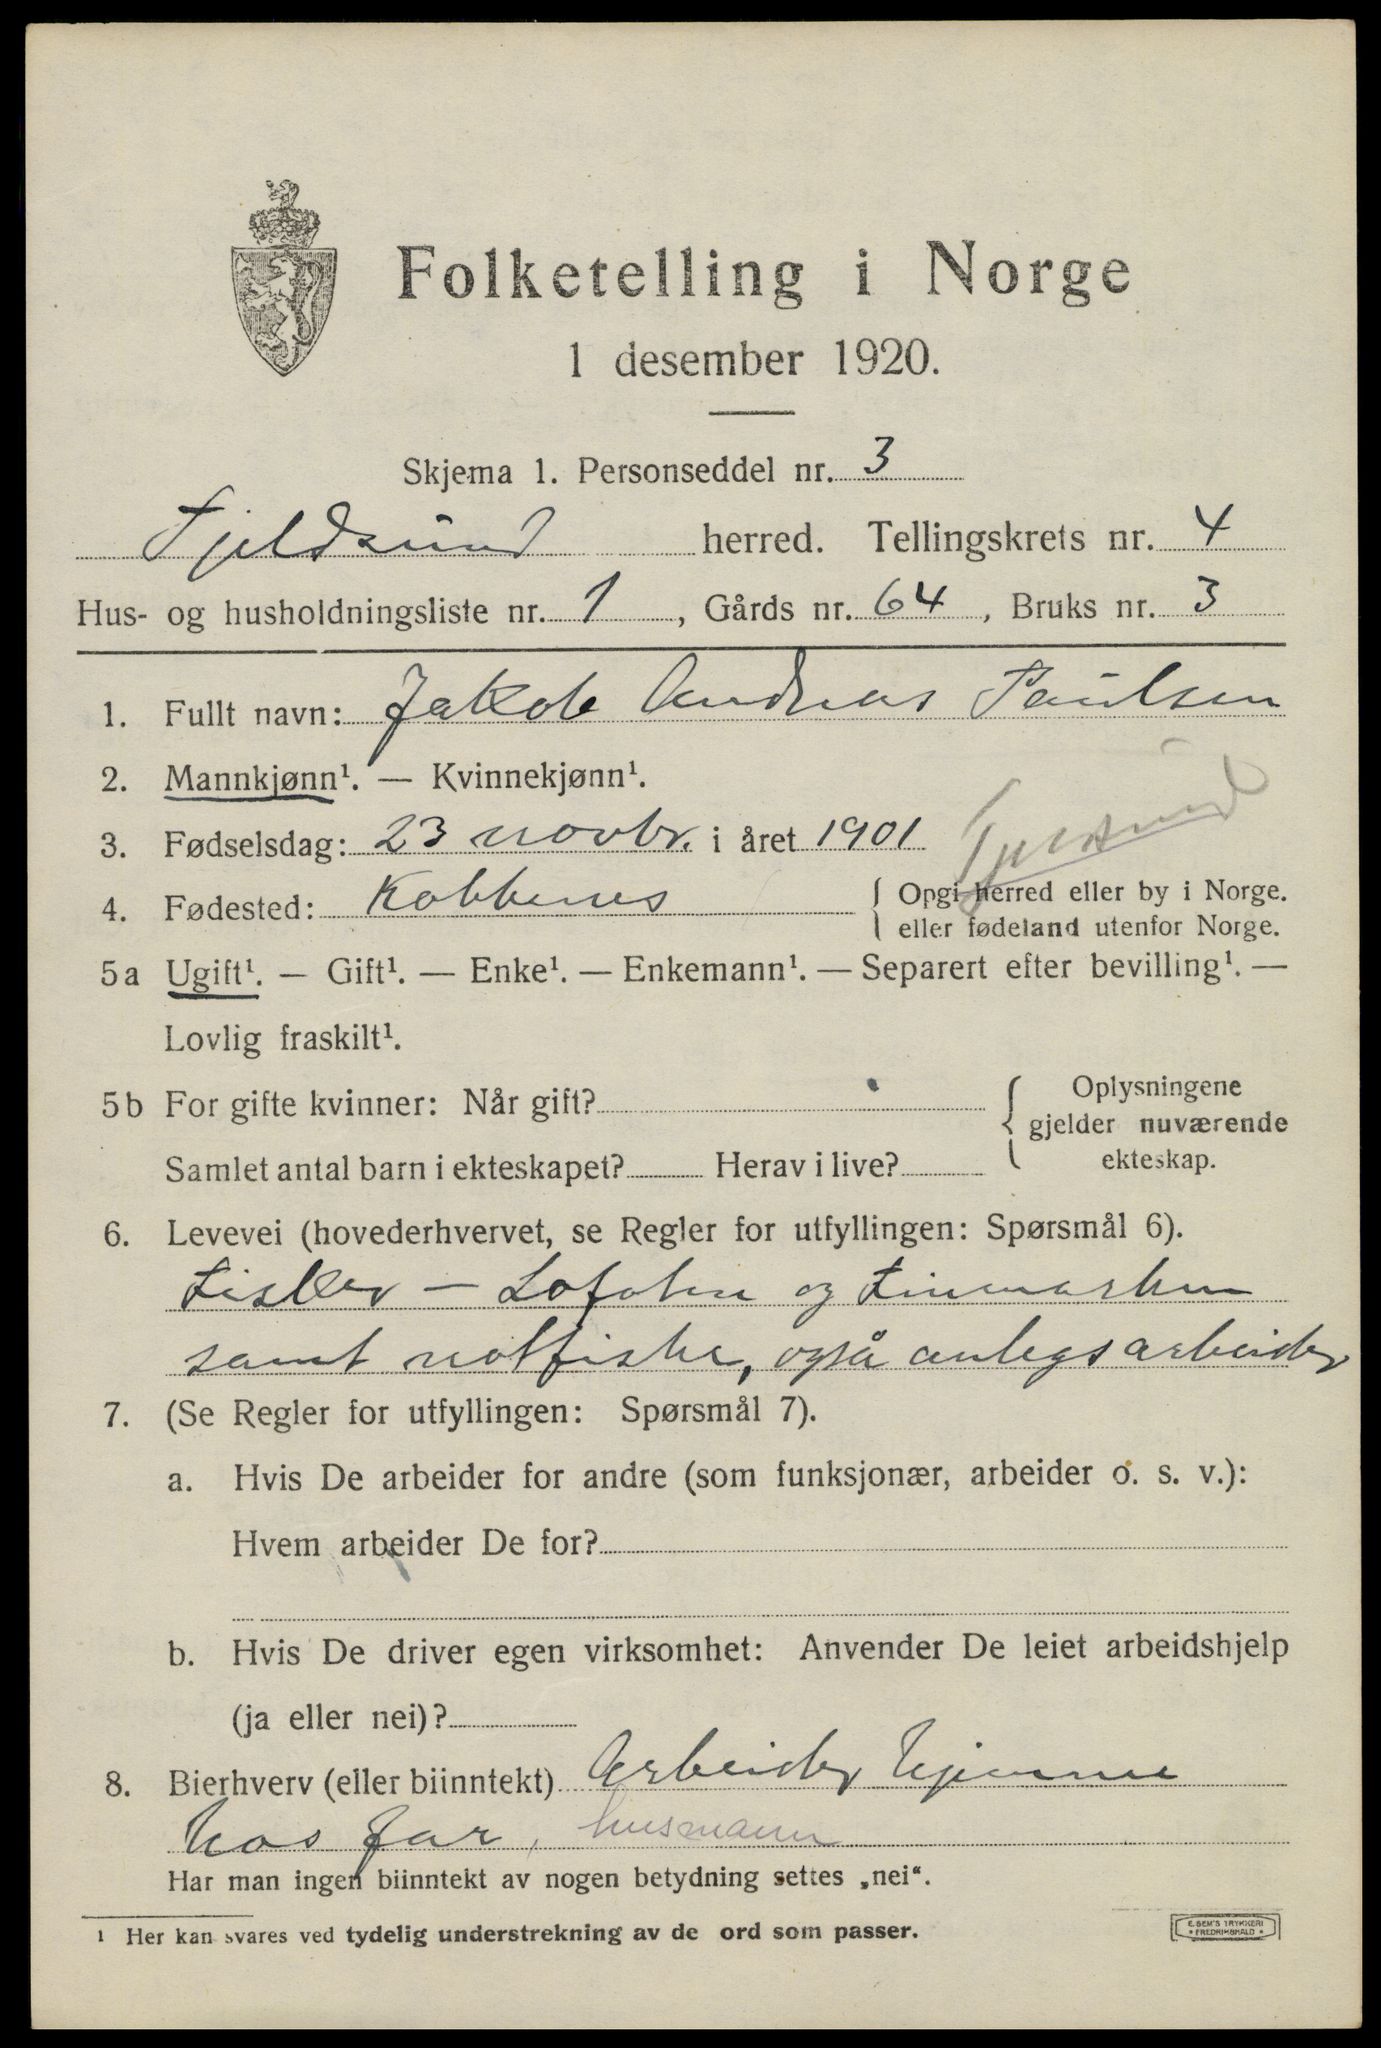 Folketelling i Norge
1 desember 1920.
Skjema 1. Personseddel nr. 3
Tjeldsund herred. Tellingskrets nr. 4
Hus- og husholdningsliste nr. 1, Gårds nr. 64, Bruks nr. 3
1. Fullt navn: Jakob Andreas Paulsen
2. Mannkjønn¹. — Kvinnekjønn¹.
3. Fødselsdag: 23 novbr. i året 1901
Tjeldsund
4. Fødested: Kobbenes { Opgi herred eller by i Norge.
eller fødeland utenfor Norge.
5a Ugift¹. — Gift¹. — Enke¹. — Enkemann¹. — Separert efter bevilling¹. —
Lovlig fraskilt¹.
5b For gifte kvinner: Når gift?
Samlet antal barn i ekteskapet? Herav i live?
{ Oplysningene
gjelder nuværende
ekteskap.
6. Levevei (hovederhvervet, se Regler for utfyllingen: Spørsmål 6).
Fisker - Lofoten og Finmarken
samt notfiske, også anlegsarbeider
7. (Se Regler for utfyllingen: Spørsmål 7).
a. Hvis De arbeider for andre (som funksjonær, arbeider o. s. v.):
Hvem arbeider De for?
b. Hvis De driver egen virksomhet: Anvender De leiet arbeidshjelp
(ja eller nei)?
8. Bierhverv (eller biinntekt) Arbeider hjemme
hos far, husmann
Har man ingen biinntekt av nogen betydning settes „nei“.
¹ Her kan svares ved tydelig understrekning av de ord som passer.
E. SEM'S TRYKKERI
* FREDRIKSHALD *